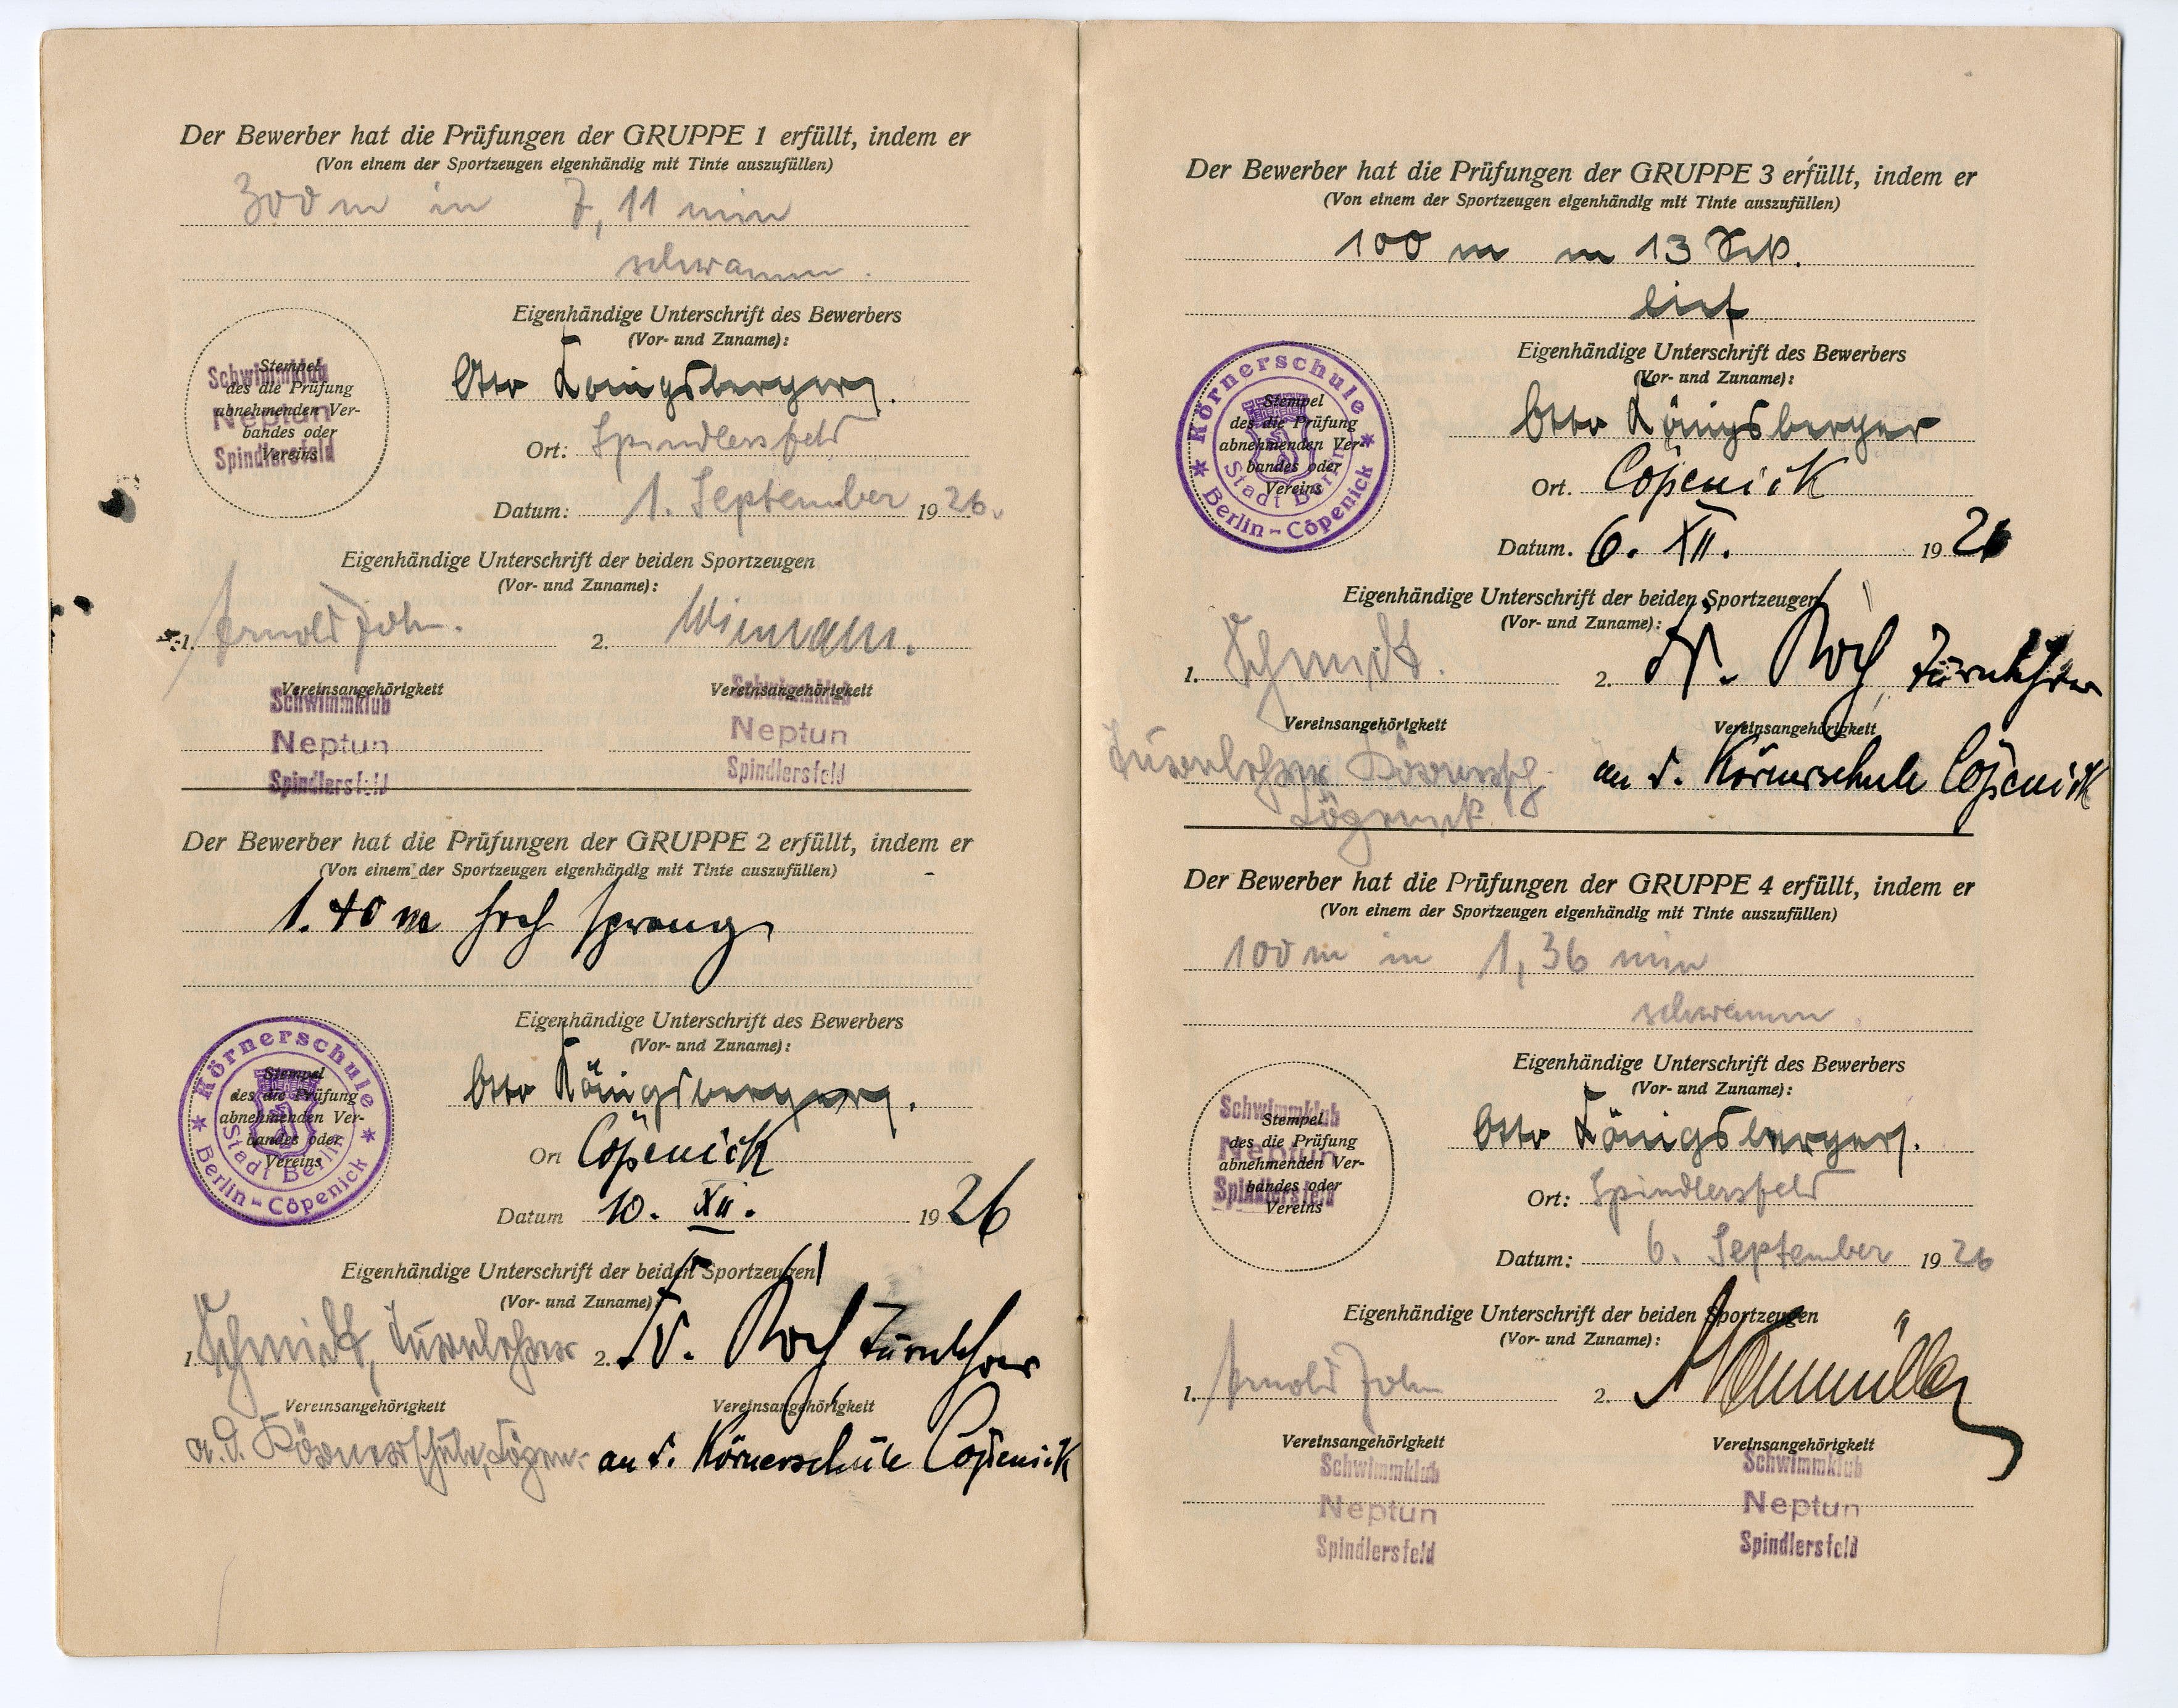 Der Bewerber hat die Prüfungen der GRUPPE 1 erfüllt, indem er
(Von einem der Sportzeugen eigenhändig mit Tinte auszufüllen)
300 m in 7,11 min
schwamm.
Eigenhändige Unterschrift des Bewerbers
(Vor- und Zuname):
Otto Königsberger.
Stempel
des die Prüfung
abnehmenden Ver-
bandes oder
Vereins
Schwimmklub
Neptun
Spindlersfeld
Ort: Spindlersfeld
Datum: 1. September 1926.
Eigenhändige Unterschrift der beiden Sportzeugen
(Vor- und Zuname):
1. Arnold John. 2.
Vereinsangehörigkeit Vereinsangehörigkeit
Schwimmklub Schwimmklub
Neptun Neptun
Spindlersfeld Spindlersfeld
Der Bewerber hat die Prüfungen der GRUPPE 2 erfüllt, indem er
(Von einem der Sportzeugen eigenhändig mit Tinte auszufüllen)
1.40 m hoch sprang
Eigenhändige Unterschrift des Bewerbers
(Vor- und Zuname):
Otto Königsberger.
Stempel
des die Prüfung
abnehmenden Ver-
bandes oder
Vereins
Körnerschule
Stadt Berlin
* Berlin-Cöpenick *
Ort Cöpenick
Datum 10. XII. 1926
Eigenhändige Unterschrift der beiden Sportzeugen
(Vor- und Zuname)
1. Schmidt, Turnlehrer 2. W. Koch Turnlehrer
Vereinsangehörigkeit Vereinsangehörigkeit
a. d. Körnerschule, Cöpen.- an d. Körnerschule Cöpenick
Der Bewerber hat die Prüfungen der GRUPPE 3 erfüllt, indem er
(Von einem der Sportzeugen eigenhändig mit Tinte auszufüllen)
100 m in 13 Sek.
lief
Eigenhändige Unterschrift des Bewerbers
(Vor- und Zuname):
Otto Königsberger
Stempel
des die Prüfung
abnehmenden Ver-
bandes oder
Vereins
Körnerschule
Stadt Berlin
* Berlin-Cöpenick *
Ort. Cöpenick
Datum. 6. XII. 1926
Eigenhändige Unterschrift der beiden Sportzeugen
(Vor- und Zuname):
1. Schmidt. 2. W. Koch, Turnlehrer
Vereinsangehörigkeit Vereinsangehörigkeit
Turnlehrer Körnersch. an d. Körnerschule Cöpenick
Cöpenick.
Der Bewerber hat die Prüfungen der GRUPPE 4 erfüllt, indem er
(Von einem der Sportzeugen eigenhändig mit Tinte auszufüllen)
100 m in 1,36 min
schwamm.
Eigenhändige Unterschrift des Bewerbers
(Vor- und Zuname):
Otto Königsberger.
Stempel
des die Prüfung
abnehmenden Ver-
bandes oder
Vereins
Schwimmklub
Neptun
Spindlersfeld
Ort: Spindlersfeld
Datum: 6. September 1926
Eigenhändige Unterschrift der beiden Sportzeugen
(Vor- und Zuname):
1. Arnold John 2.
Vereinsangehörigkeit Vereinsangehörigkeit
Schwimmklub Schwimmklub
Neptun Neptun
Spindlersfeld Spindlersfeld